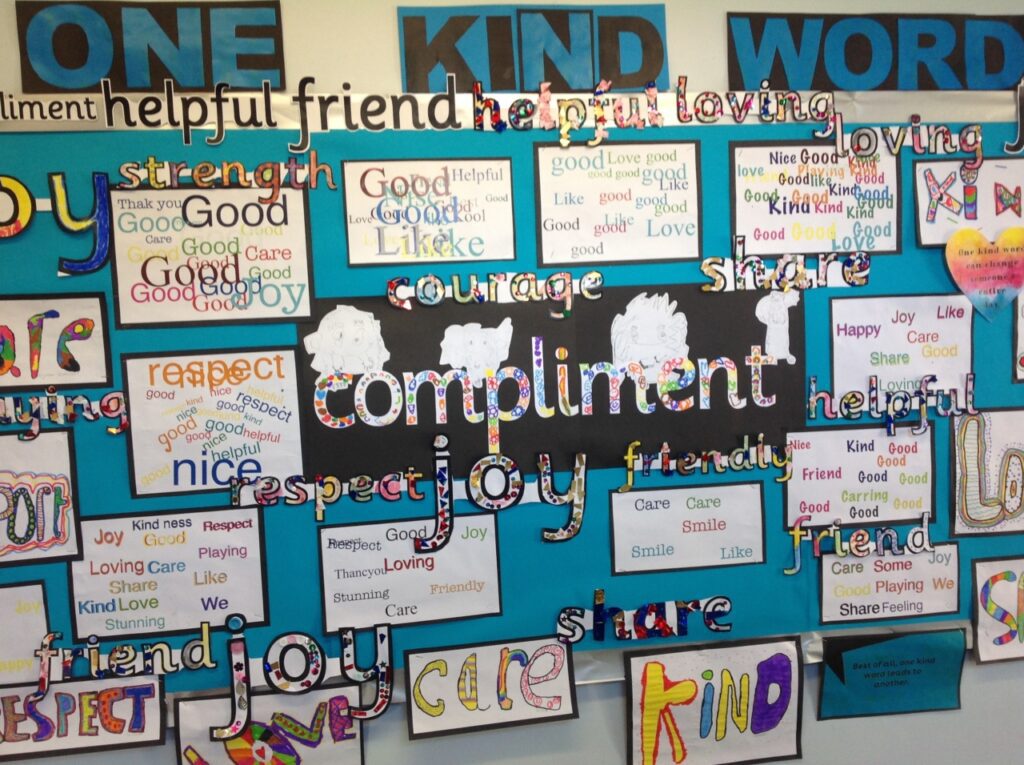 ONE KIND WORD
helpful friend helpful loving
loving
strength
Thak you Good
Good
Care
Good
Good Care
Good Good
Good Good
Good Joy
Good Helpful
Nice
Good
Cool
Love
Like
Like
good Love good
good good good good
Like
Like good good
good
Good Like Love
good
Nice Good Kind
love Playing Kind
Good like
Kind Good
Good Good
Kind Kind Kind
Good
Good Good Good
Love
Kin
One kind word
can change
someone's
entire
day
courage
share
compliment
Happy Joy Like
Care
Share Good
Loving
respect
nice
good nice
kind
nice good respect
good good helpful
good nice
helpful
nice
respect
joy
friendly
helpful
Nice Kind Good
Good
Friend Good Good
Carring
Good Good Good
Care Care
Smile
Smile Like
friend
Kind ness Respect
Joy Good
Playing
Loving Care
Share Like
Kind Love We
Stunning
Respect Good Joy
Loving
Thancyou
Stunning Friendly
Care
Care Some Joy
Good Playing We
Share Feeling
Joy
friend
joy
share
RESPECT
LOVE
care
KiND
Best of all, one kind
word leads to
another.